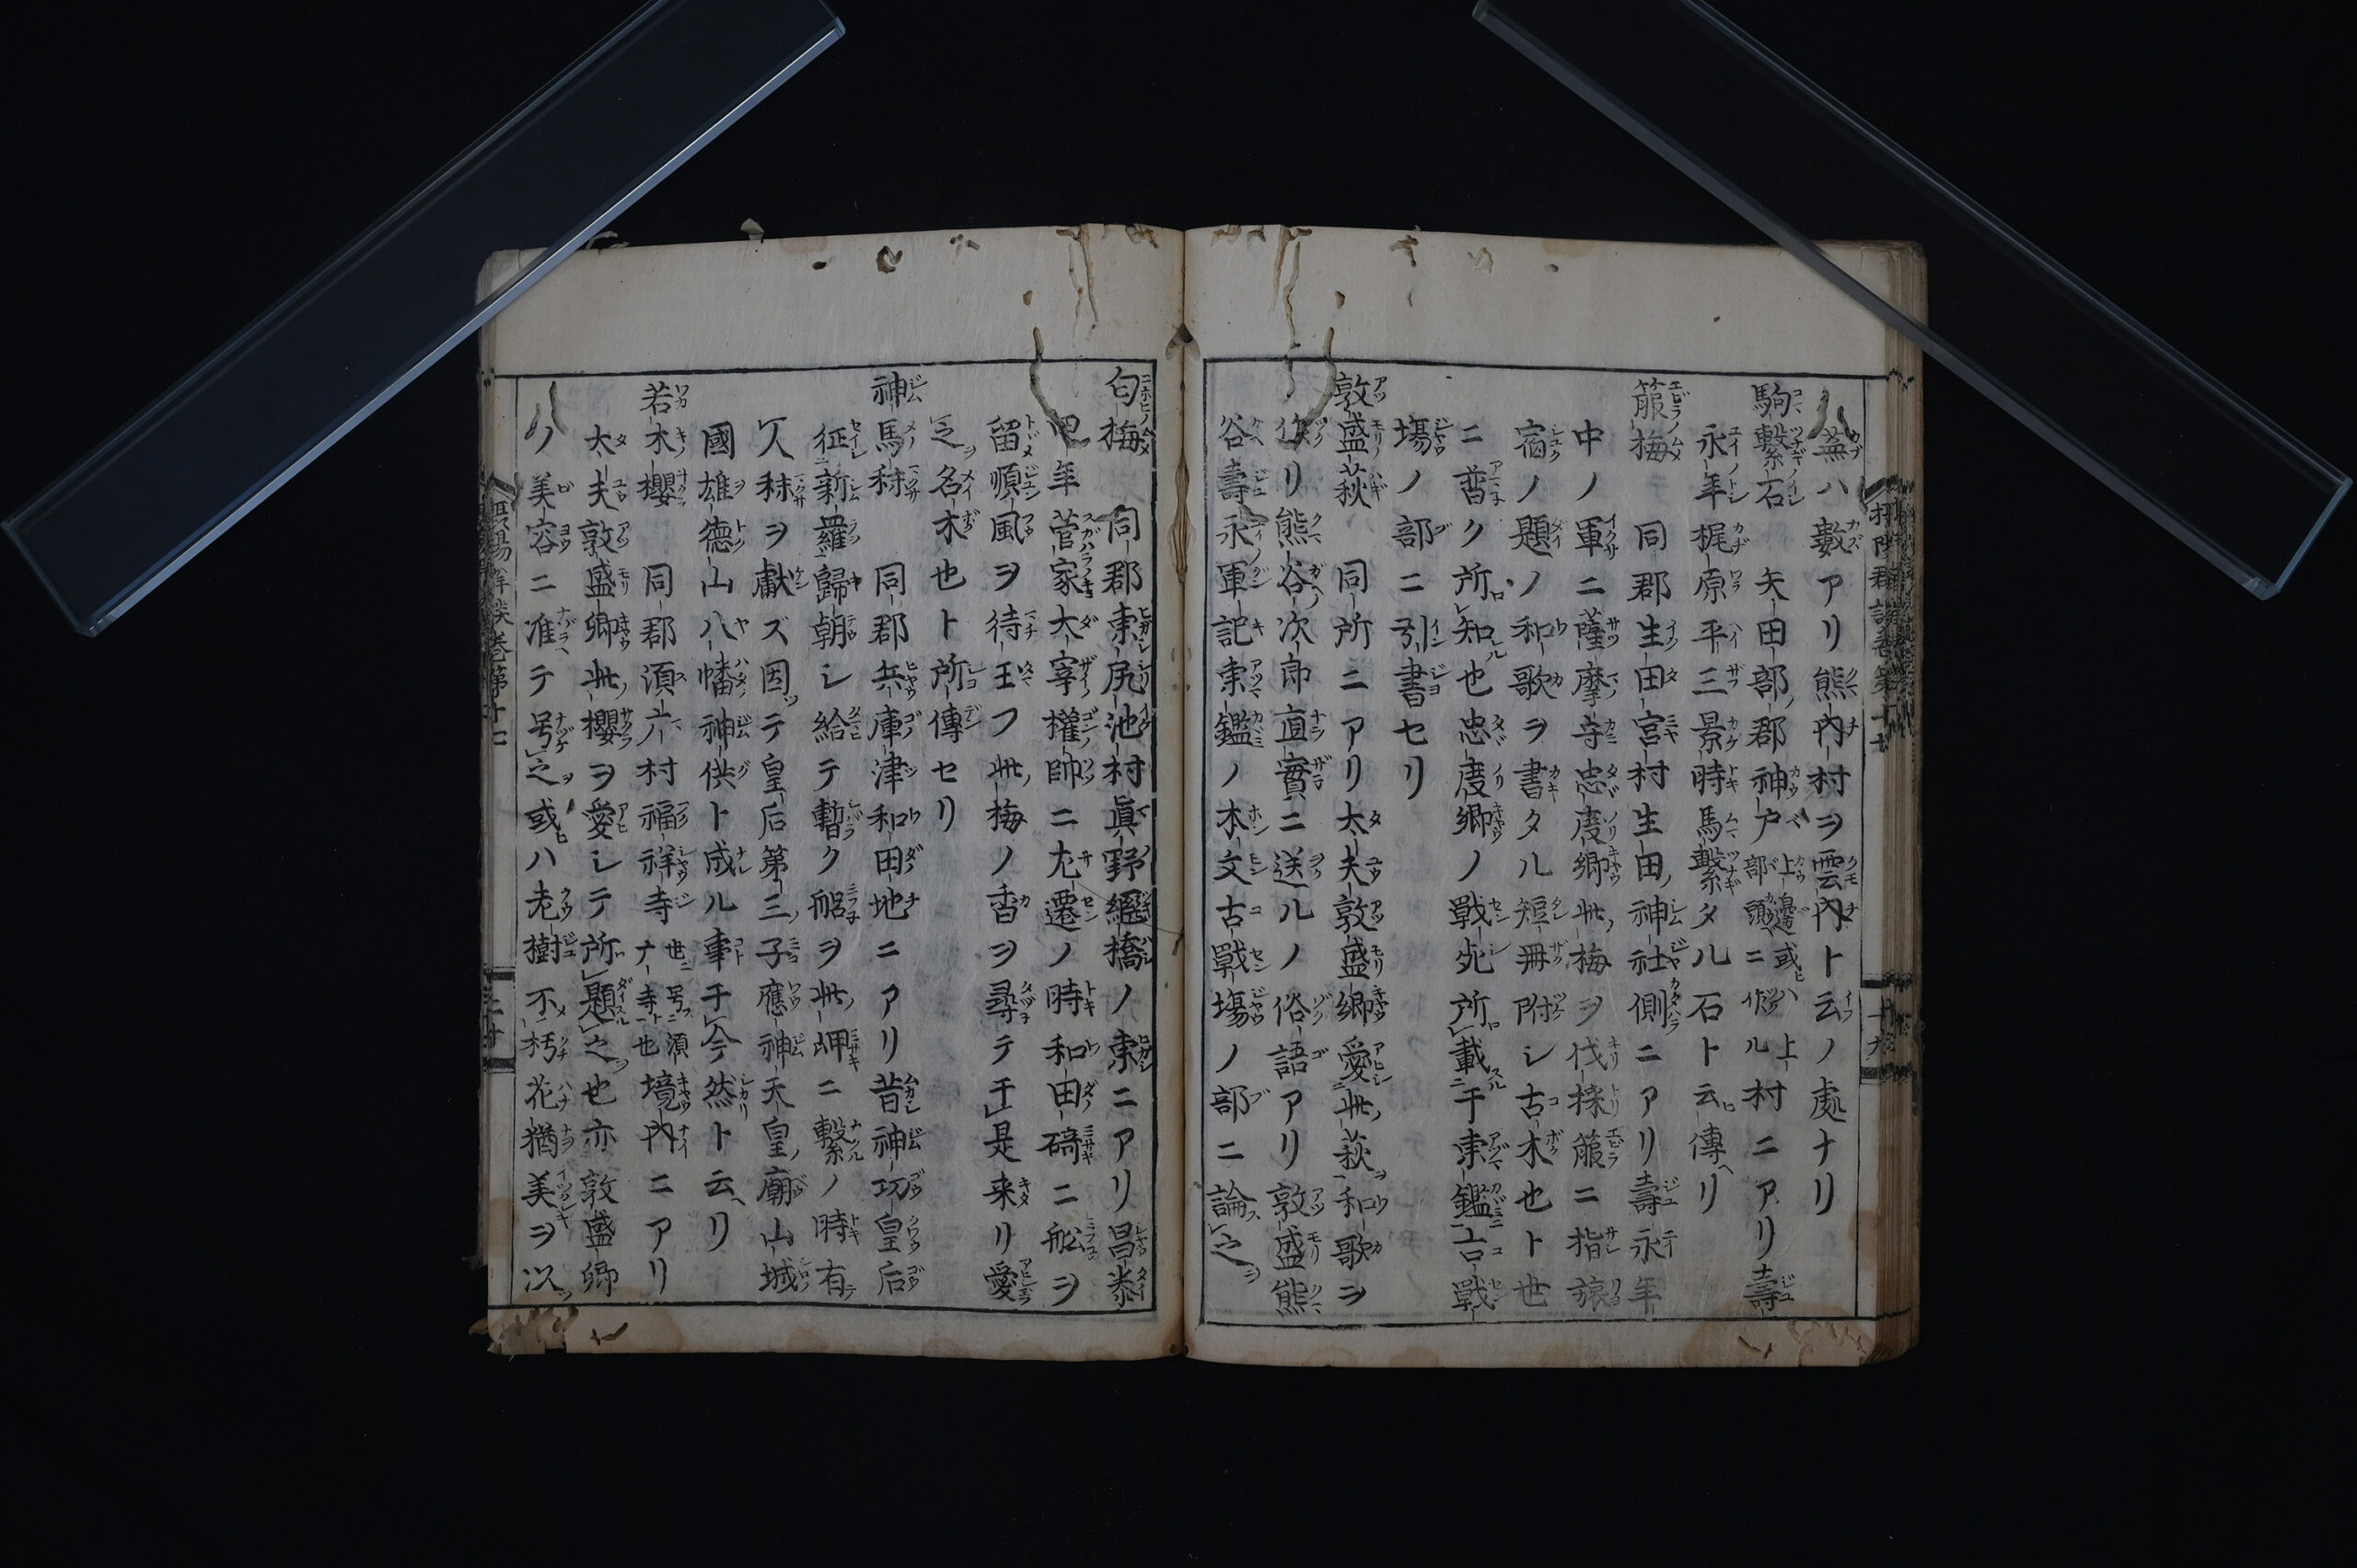 蕪ハ數アリ熊内村ヲ雲内ト云ノ處ナリ
駒繫石 矢田部郡神戸上邊或ハ上部頭ニ作ル村ニアリ壽
永年梶原平三景時馬繫タル石ト云傳ヘリ
箙梅 同郡生田宮村生田神社側ニアリ壽永年
中ノ軍ニ薩摩守忠度卿此梅ヲ伐採箙ニ指旅
宿ノ題ノ和歌ヲ書タル短冊附シ古木也ト世
ニ普ク所知也忠度卿ノ戰死所載于東鑑古戰
場ノ部ニ引書セリ
敦盛萩 同所ニアリ太夫敦盛卿愛此萩和歌ヲ
作リ熊谷次郎直實ニ送ルノ俗語アリ敦盛熊
谷壽永軍記東鑑ノ本文古戰場ノ部ニ論之
匂梅 同郡東尻池村眞野繼橋ノ東ニアリ昌泰
四年菅家大宰權帥ニ左遷ノ時和田碕ニ舩ヲ
留順風ヲ待玉フ此梅ノ香ヲ尋テ于是来リ愛
之名木也ト所傳セリ
神馬秣 同郡兵庫津和田地ニアリ昔神功皇后
征新羅歸朝シ給テ暫ク舩ヲ此岬ニ繫ノ時有
人秣ヲ獻ズ因テ皇后第三子應神天皇廟山城
國雄德山八幡神供ト成ル事于今然ト云リ
若木櫻 同郡須广村福祥寺世ニ号須ナ寺ト也境内ニアリ
太夫敦盛卿此櫻ヲ愛シテ所題之也亦敦盛卿
ノ美容ニ准テ号之或ハ老樹不朽花猶美ヲ以